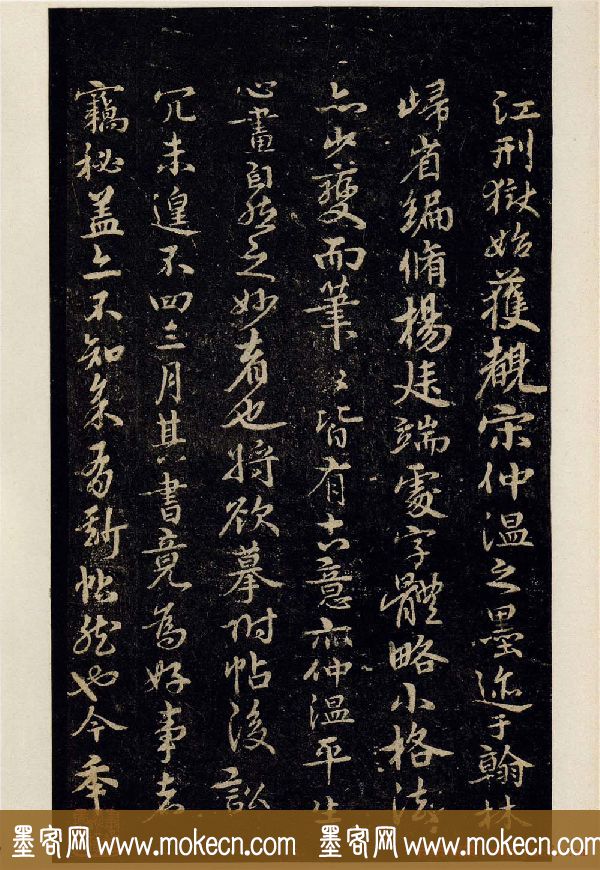 江刑獄始獲觀宋仲溫之墨迹于翰林
歸省編脩楊廷端處字體略小格法
亦少變而筆〻皆有古意亦仲溫平生
心畫自然之妙者也將欲摹附帖後訟
冗未遑不四三月其書竟為好事者
竊秘蓋亦不知余為斯帖
也今年
墨客网 www.mokecn.com 墨客网 www.mokecn.com